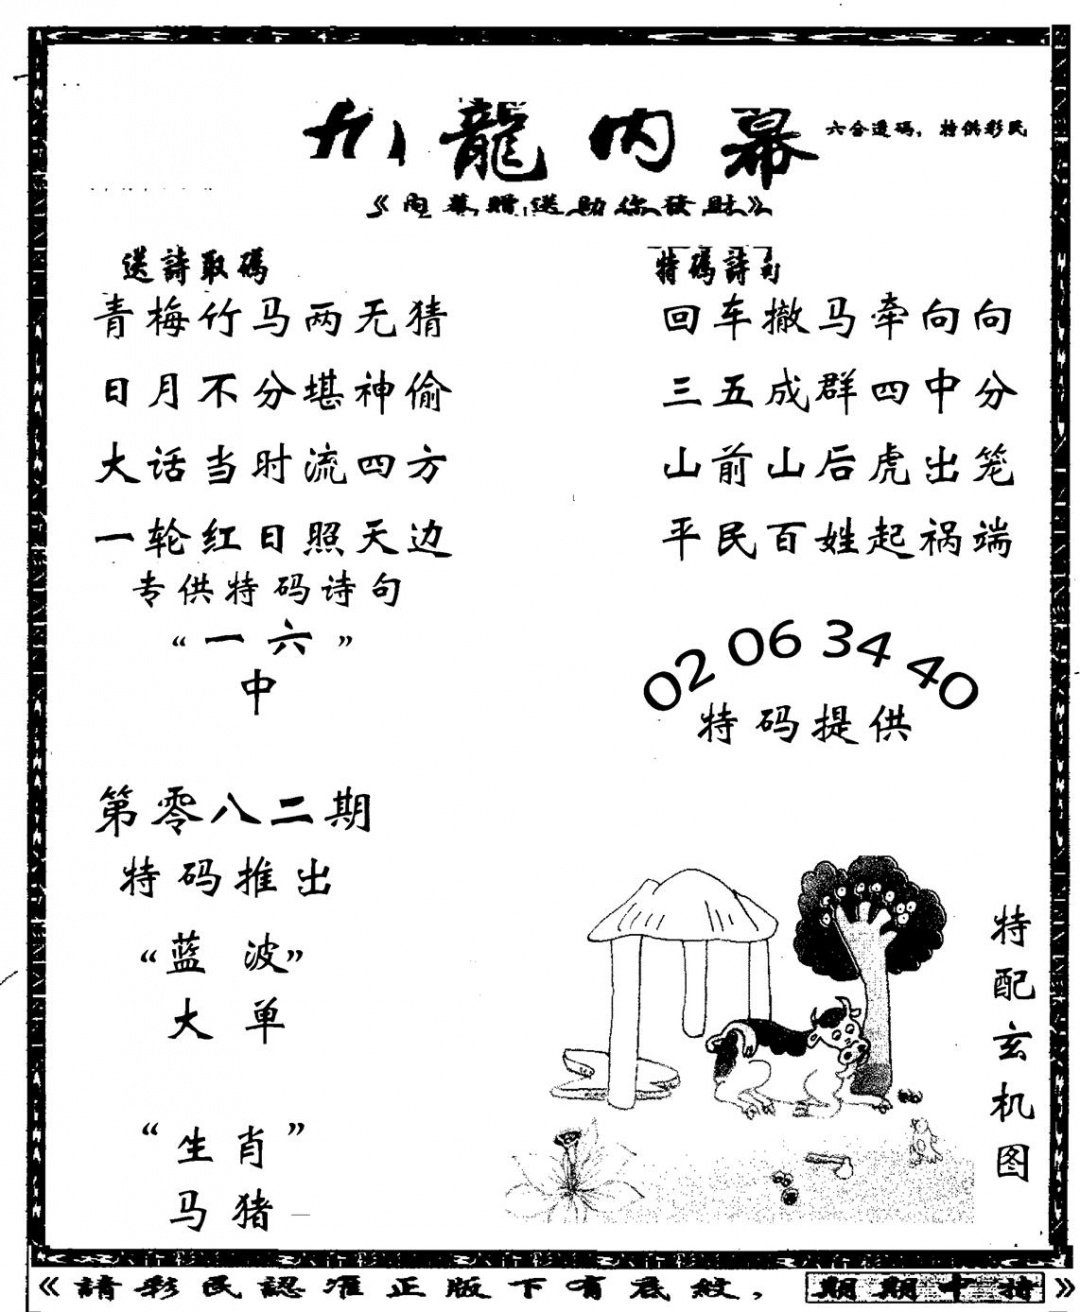 九龍内幕
六合透碼，特供彩民
《内幕贈送助你發財》
送詩取碼
青梅竹马两无猜
日月不分堪神偷
大话当时流四方
一轮红日照天边
专供特码诗句
“一六”
中
特碼詩句
回车撤马牵向向
三五成群四中分
山前山后虎出笼
平民百姓起祸端
02 06 34 40
特码提供
第零八二期
特码推出
“蓝波”
大单
“生肖”
马猪
特配玄机图
《請彩民認准正版下有底紋，期期中特》